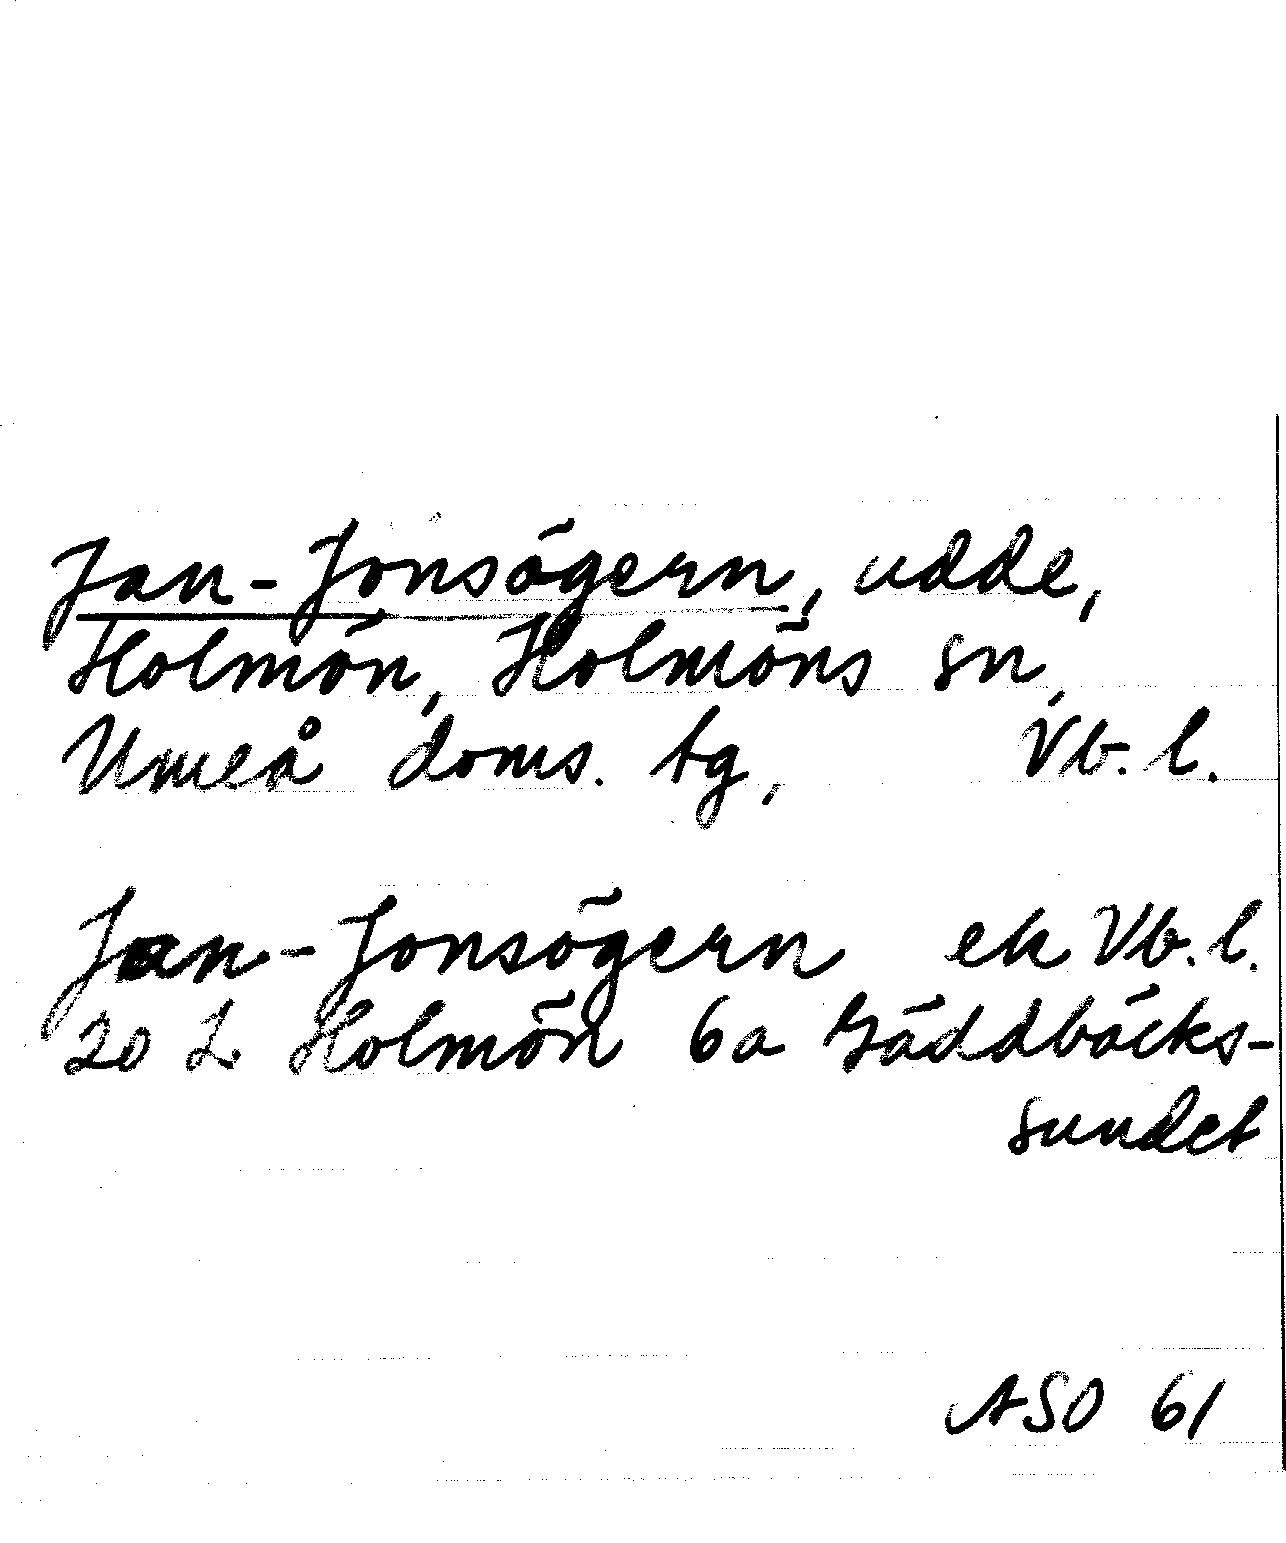 Jan-Jonsögern, udde,
Holmön, Holmöns sn,
Umeå doms. tg, Vb. l.
Jan-Jonsögern ek Vb. l.
20 L Holmön 6a Gäddbäcks-
sundet
ASO 61